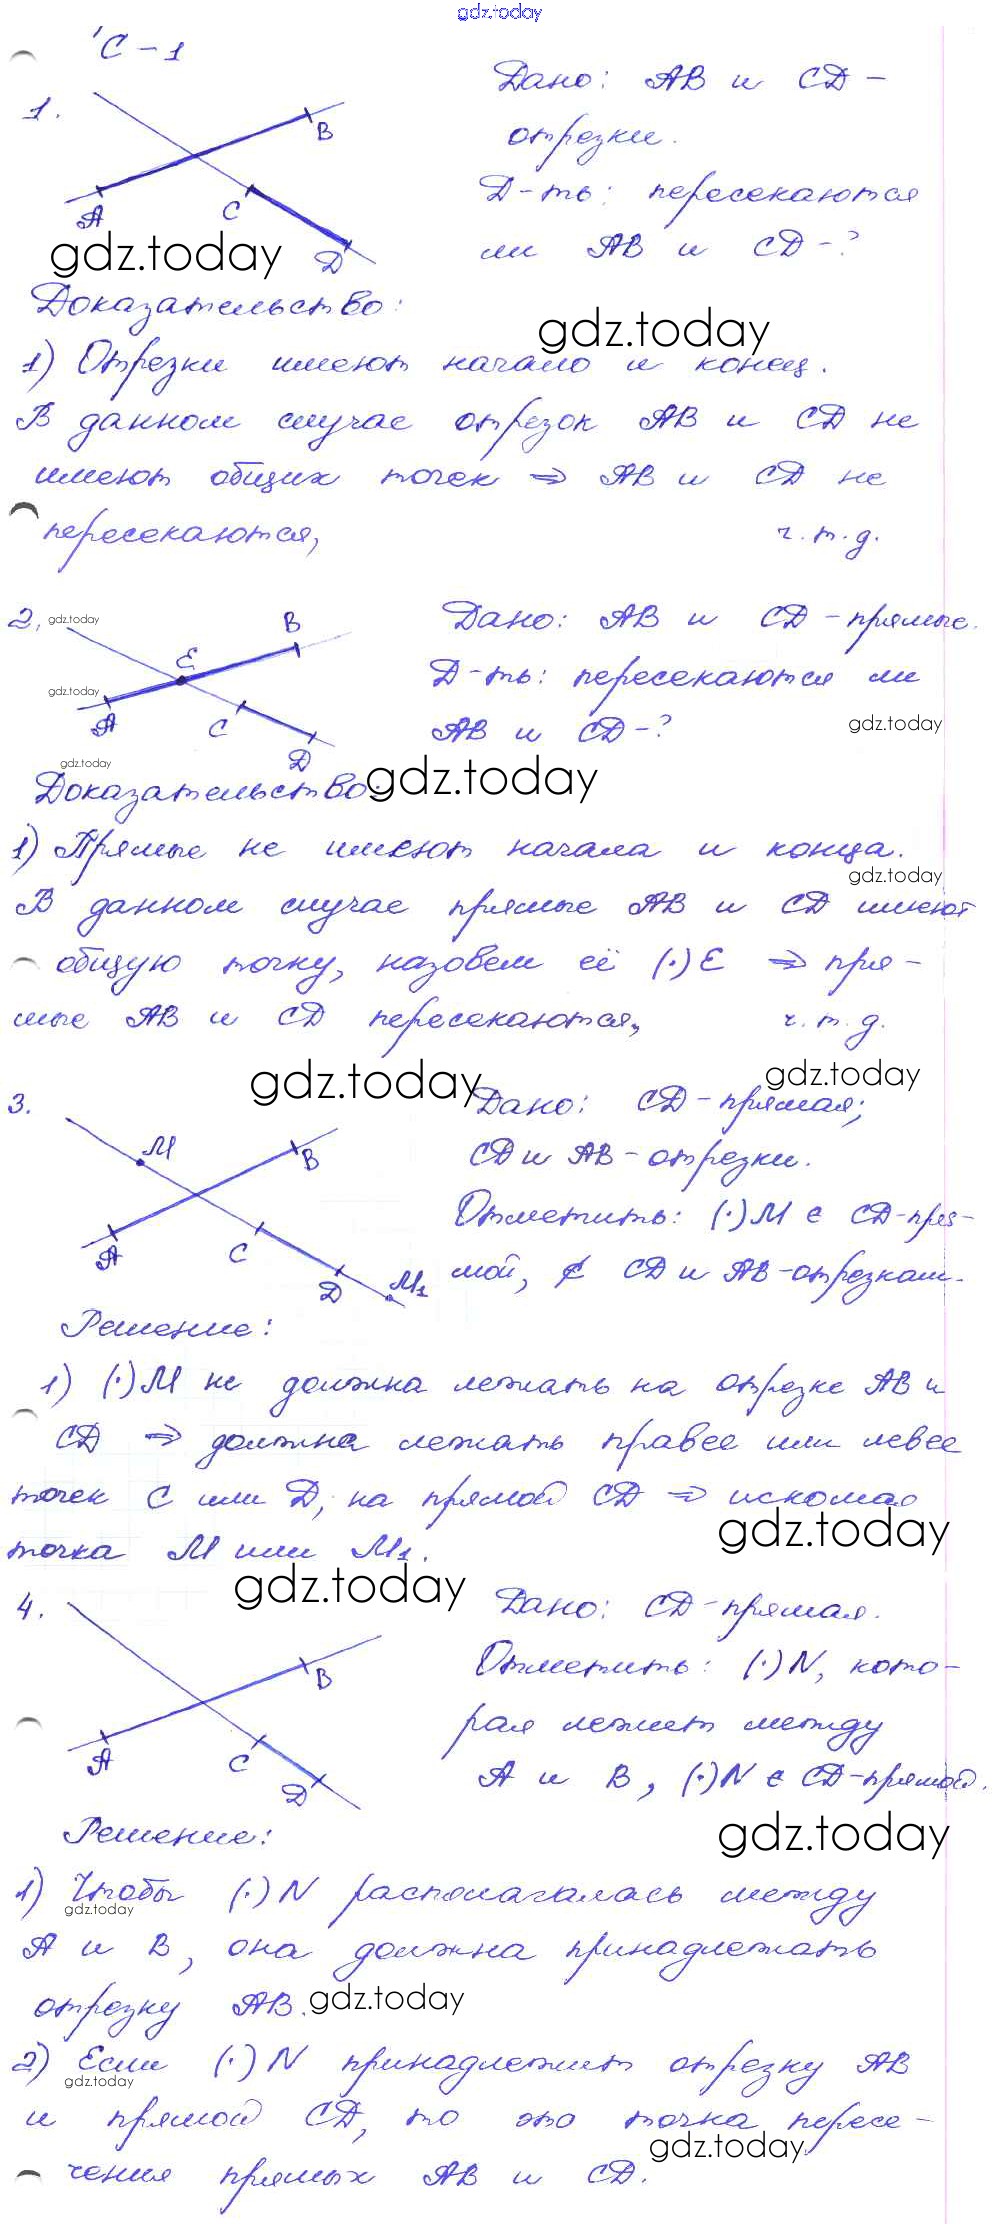 gdz.today
С-1
1.
Дано: AB и CD -
отрезки.
Д-ть: пересекаются
ли AB и CD-?
A B C D
gdz.today
Доказательство:
gdz.today
1) Отрезки имеют начало и конец.
В данном случае отрезок AB и CD не
имеют общих точек ⇒ AB и CD не
пересекаются, ч.т.д.
2. gdz.today
Дано: AB и CD - прямые.
Д-ть: пересекаются ли
AB и CD-?
A B C D E
gdz.today
gdz.today
gdz.today
Доказательство: gdz.today
1) Прямые не имеют начала и конца.
gdz.today
В данном случае прямые AB и CD имеют
общую точку, назовем её (·)E ⇒ пря-
мые AB и CD пересекаются, ч.т.д.
gdz.today gdz.today
3.
Дано: CD - прямая;
CD и AB - отрезки.
Отметить: (·)M ∈ CD-пря-
мой, ∉ CD и AB-отрезкам.
M B A C D M₁
Решение:
1) (·)M не должна лежать на отрезке AB и
CD ⇒ должна лежать правее или левее
точек C или D, на прямой CD ⇒ искомая
gdz.today
точка M или M₁.
gdz.today
4.
Дано: CD - прямая.
Отметить: (·)N, кото-
рая лежит между
A и B, (·)N ∈ CD-прямой.
A B C D
gdz.today
Решение:
1) Чтобы (·)N располагалась между
gdz.today
A и B, она должна принадлежать
отрезку AB. gdz.today
2) Если (·)N принадлежит отрезку AB
gdz.today
и прямой CD, то это точка пересе-
gdz.today
чения прямых AB и CD.